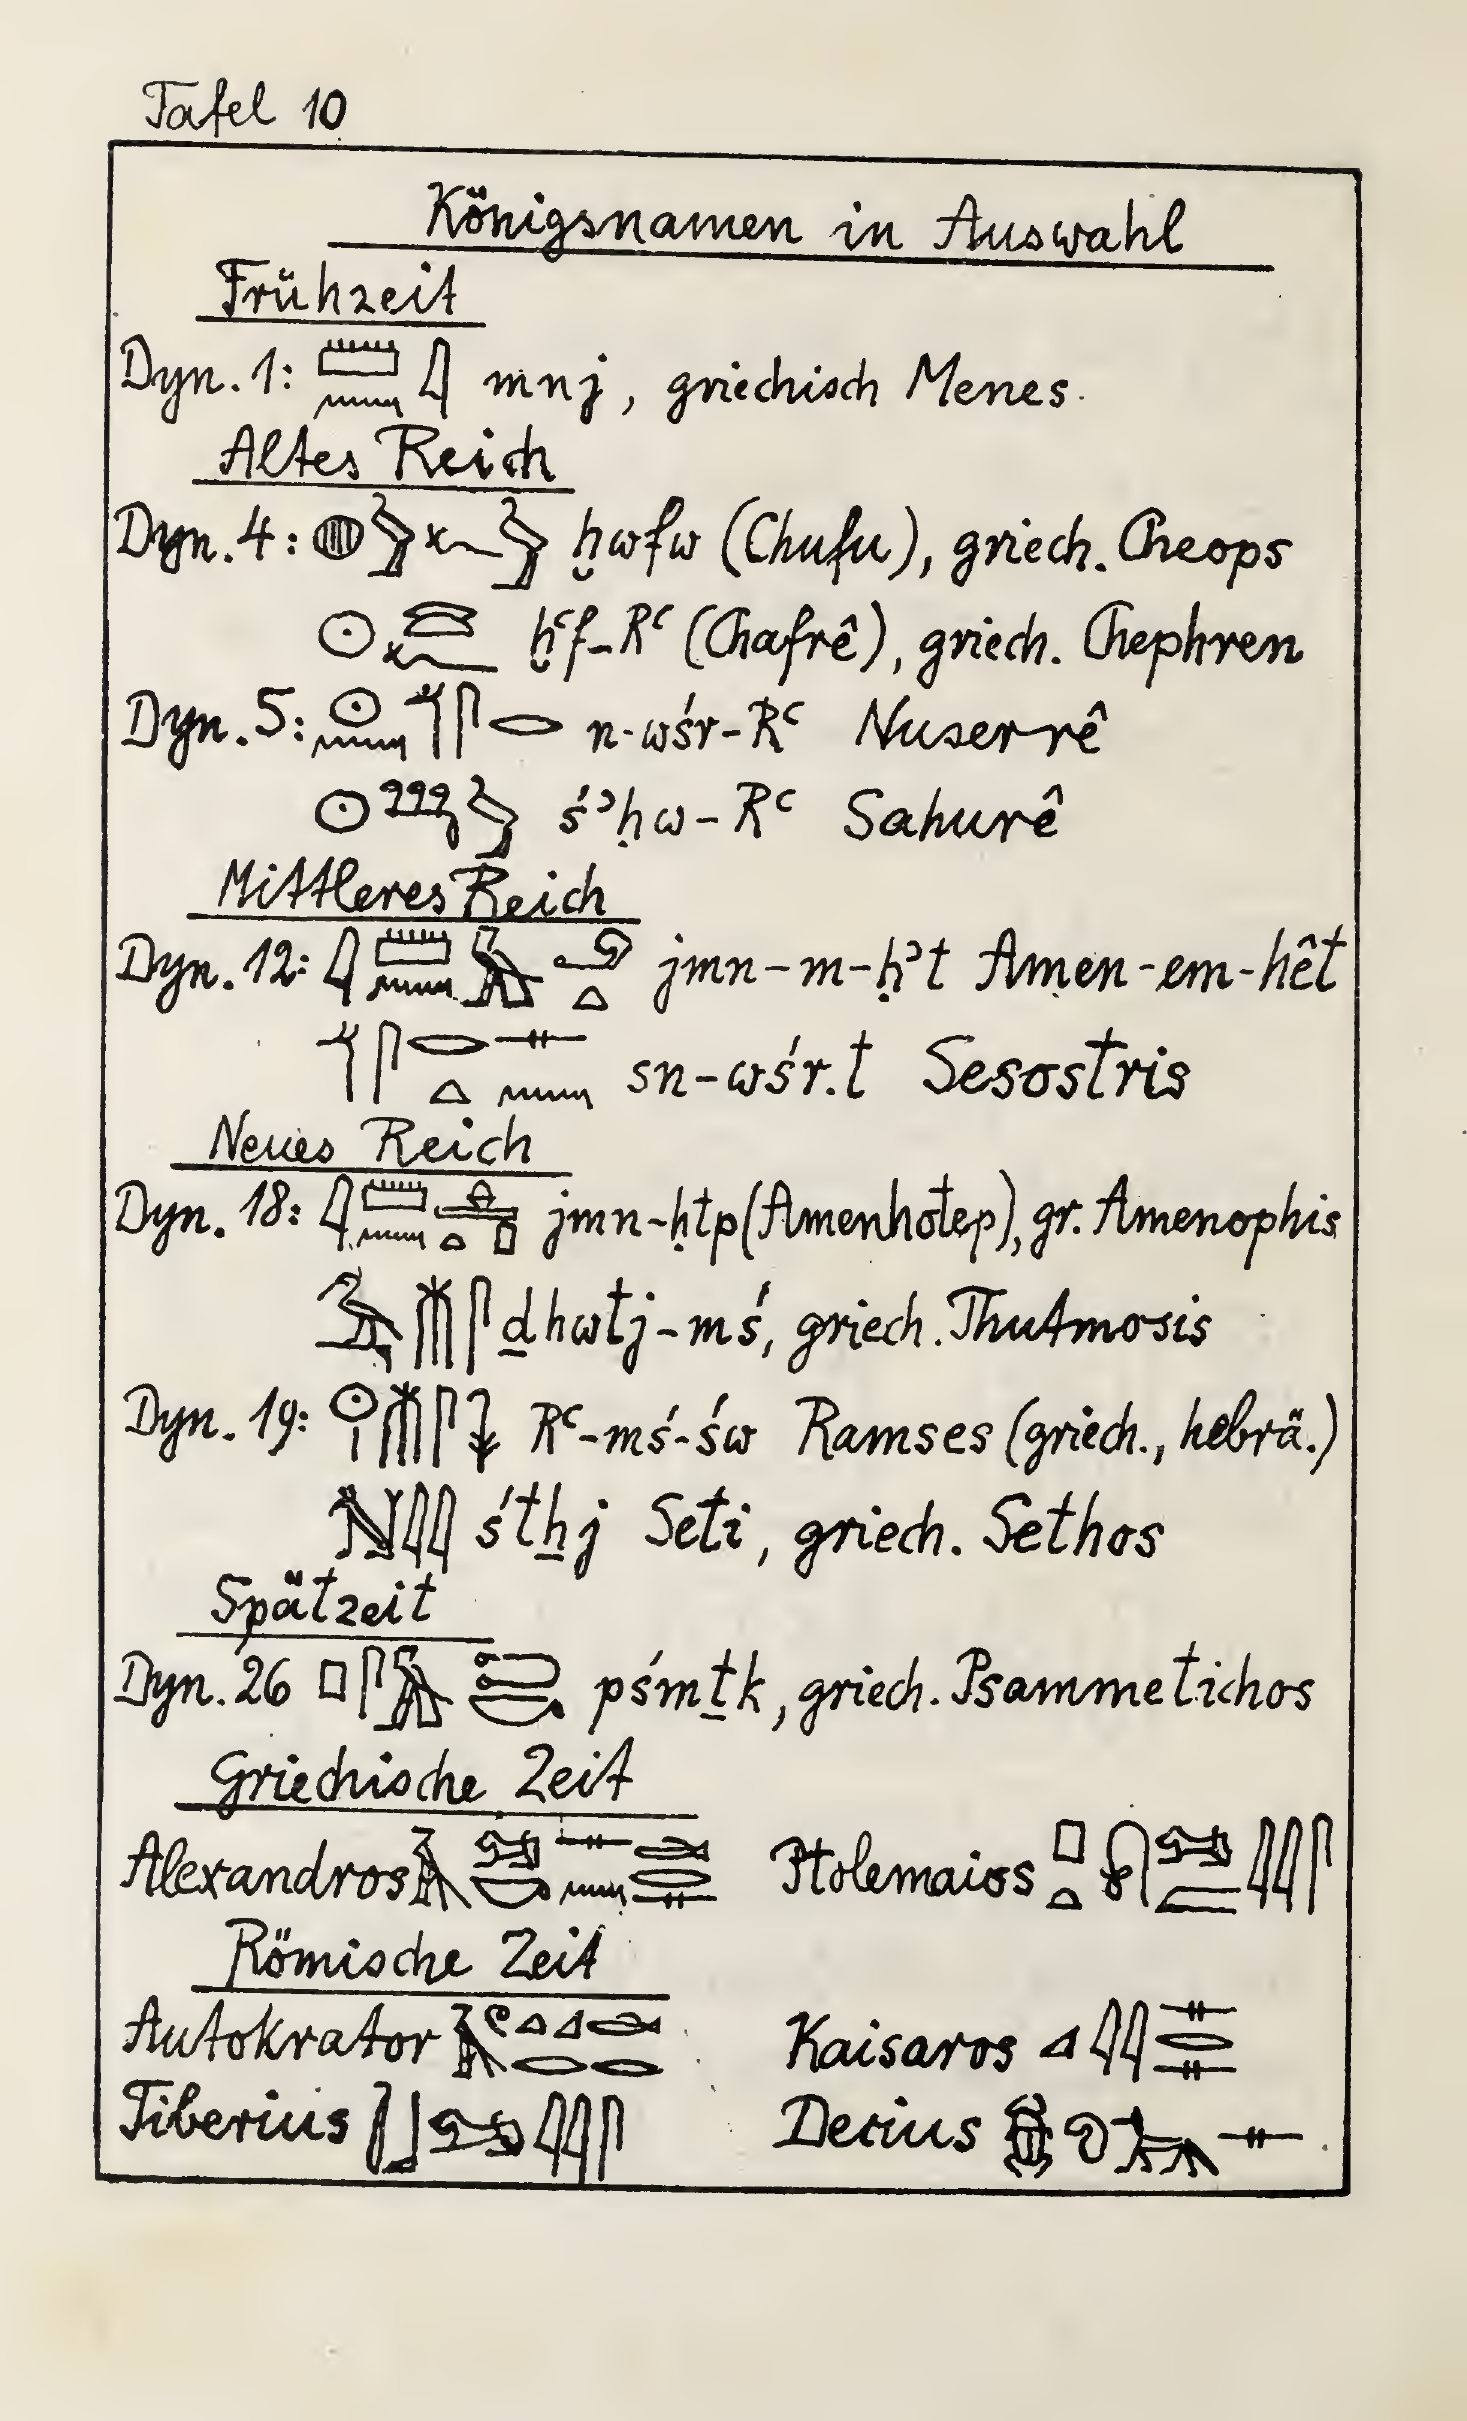 Tafel 10
Königsnamen in Auswahl
Frühzeit
Dyn. 1: 𓏠𓈖𓇋 mnj, griechisch Menes.
Altes Reich
Dyn. 4: 𓐍𓅱𓆑𓅱 ḫwfw (Chufu), griech. Cheops
𓇳𓈍𓆑 ḫꜥf-Rꜥ (Chafrê), griech. Chephren
Dyn. 5: 𓇳𓈖𓄊𓋴𓂋 n-wśr-Rꜥ Nuserrê
𓇳𓐠𓅱 śꜣḥw-Rꜥ Sahurê
Mittleres Reich
Dyn. 12: 𓇋𓏠𓈖𓅓𓄂𓏏 jmn-m-ḥꜣt Amen-em-hêt
𓄊𓋴𓂋𓏏𓊃𓈖 sn-wśr.t Sesostris
Neues Reich
Dyn. 18: 𓇋𓏠𓈖𓊵𓏏𓊪 jmn-ḥtp (Amenhotep), gr. Amenophis
𓅝𓄟𓋴 ḏhwtj-mś, griech. Thutmosis
Dyn. 19: 𓇳𓏤𓄟𓋴𓇓 Rꜥ-mś-św Ramses (griech., hebrä.)
𓇋𓇋 śtẖj Seti, griech. Sethos
Spätzeit
Dyn. 26 𓊪𓋴𓅓𓍿𓎡 pśmṯk, griech. Psammetichos
Griechische Zeit
Alexandros 𓄿𓃭𓎡𓊃𓈖𓂧𓂋𓊃 Ptolemaios 𓊪𓏏𓍯𓃭𓐝𓇋𓇋𓋴
Römische Zeit
Autokrator 𓄿𓍢𓏏𓈎𓂋𓂧𓂋 Kaisaros 𓈎𓇋𓇋𓊃𓂋𓊃
Tiberius 𓃀𓃭𓇋𓇋𓋴 Decius 𓆣𓊃